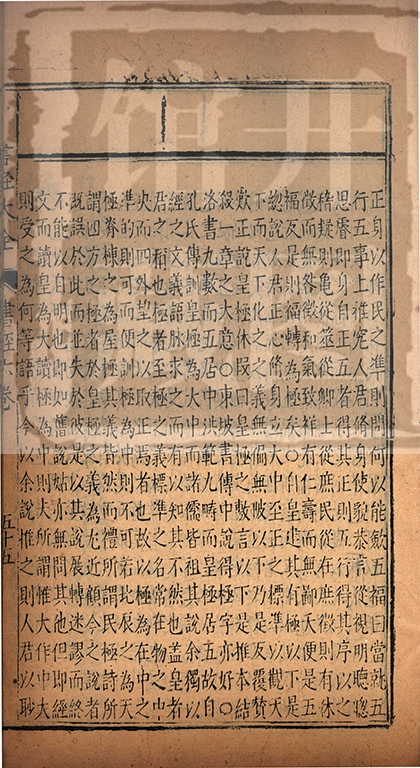 正身以作民之準則問何以能斂五福曰當就五
行五事上推究人君脩身使貌恭言從視明聽聰
思睿即身自正五者得其正則五行得其序以之
稽疑則龜從筮從卿士從庶民從在庶徵則有休
徵而無咎徵和氣致祥有仁壽而無鄙夭便是五
福反是則福轉為極矣○自皇進其有極以下是
總說人君正心修身立大中至正之標準以觀天
下而天下化之之義無偏無陂以下乃是反覆贊
歎正說皇極休叚曰皇極之敷言以下是推本結
殺一章之大意○東坡書傳中說得極字亦好○
洛書九數而五居中洪範九疇而皇極居五故自
孔氏傳訓皇極為大中而諸儒皆祖其說余獨以
經之文義語脉求之而有以知其不然也蓋皇者
君之稱也極者至極之義標準之名常在物之中
央而四外望之以取正焉者也故以極為在中之
準的則可而便訓極為中則不可若北辰之為天
極脊棟之為屋極其義皆然而禮所謂民極詩所
謂四方之極者於皇極之義為尤近顧今之說者
既誤於此而並失於彼是以其說展轉迷謬而終
不能以自明也即如舊說姑亦無問其他但即經
文而讀皇為大讀極為中則夫所謂惟大作中大
則受之為何等語乎今以余說推之則人君以眇
書經大全 書經六卷 五十五